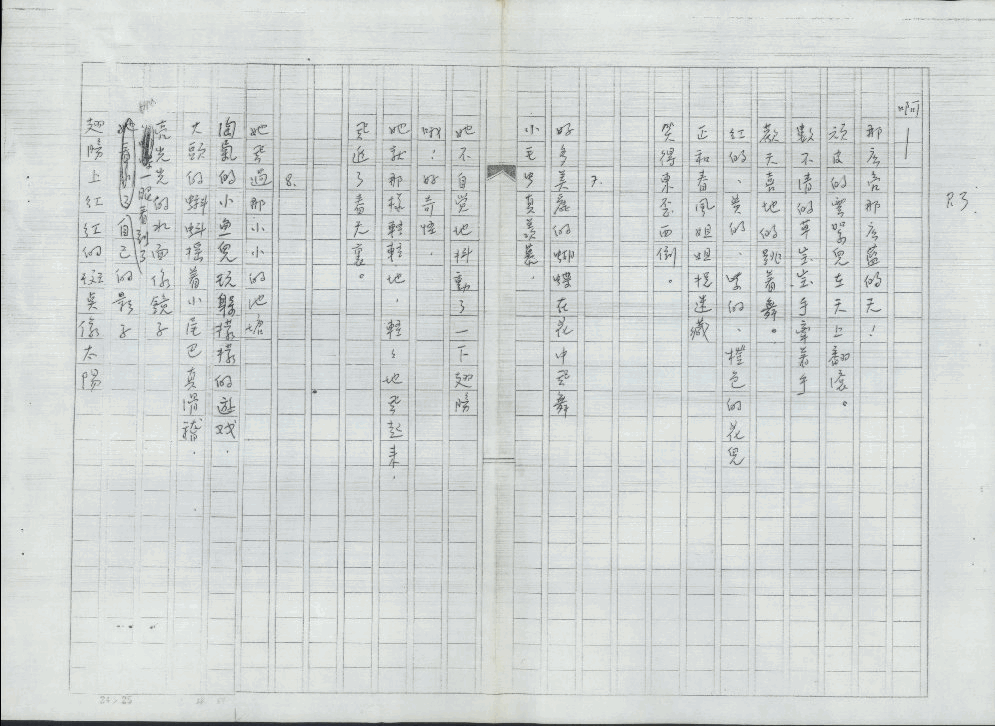 P.3
啊——
那麼高那麼藍的天！
頑皮的雲絮兒在天上翻滾。
數不清的草崽崽手牽著手
歡天喜地的跳着舞。
紅的、黃的、紫的、橙色的花兒
正和春風姐姐捉迷藏
笑得東歪西倒。
7.
好多美麗的蝴蝶在花中飛舞
小毛虫真羨慕．
她不自覺地抖動了一下翅膀
哦！好奇怪．
她就那樣輕輕地，輕輕地飛起來．
飛進了春天裏。
8.
她飛過那小小的池塘
淘氣的小魚兒玩躲樣樣的遊戏．
大頭的蝌蚪搖着小尾巴真滑稽．
亮光光的水面像鏡子
一眼看到了
她看見了自己的影子
翅膀上紅紅的斑點像太陽
24×25